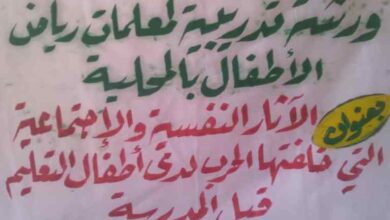 ورشة تدريبية لمعلمات رياض
الأطفال بالمحلية
بعنوان
الآثار النفسية والإجتماعية
التي خلفتها الحرب لدى أطفال التعليم
قبل المدرسية